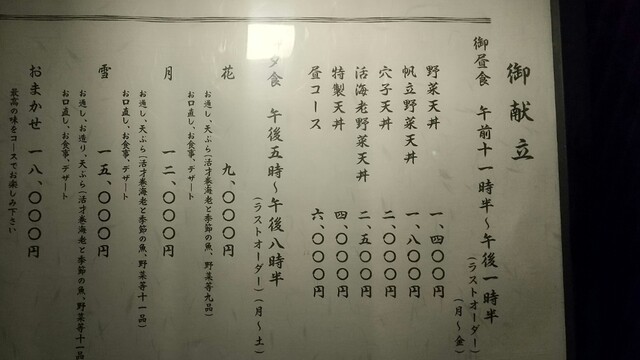 御献立
御昼食 午前十一時半～午後一時半
(ラストオーダー) (月～金)
野菜天丼 一、四〇〇円
帆立野菜天丼 一、八〇〇円
穴子天丼 二、〇〇〇円
活海老野菜天丼 二、五〇〇円
特製天丼 四、〇〇〇円
昼コース 六、〇〇〇円
夕食 午後五時～午後八時半
(ラストオーダー) (月～土)
花 九、〇〇〇円
お通し、天ぷら(活才巻海老と季節の魚、野菜等九品)
お口直し、お食事、デザート
月 一二、〇〇〇円
お通し、天ぷら(活才巻海老と季節の魚、野菜等十一品)
お口直し、お食事、デザート
雪 一五、〇〇〇円
お通し、お造り、天ぷら(活才巻海老と季節の魚、野菜等十一品)
お口直し、お食事、デザート
おまかせ 一八、〇〇〇円
最高の味をコースでお楽しみ下さい。